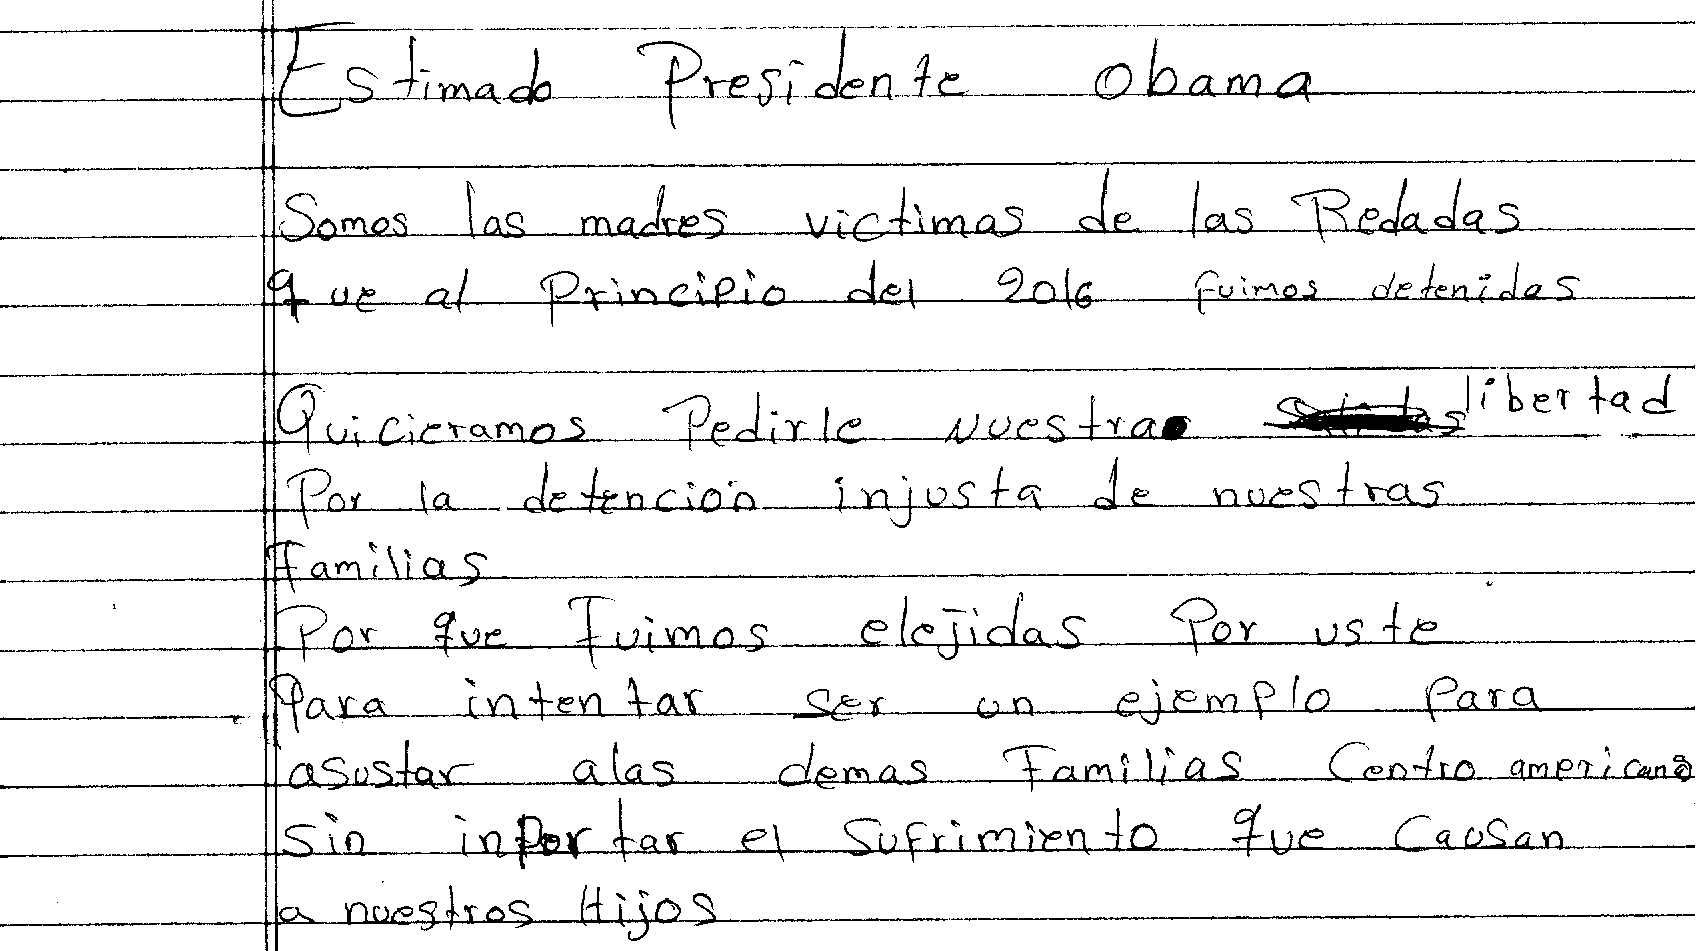 Estimado Presidente Obama
Somos las madres victimas de las Redadas
que al Principio del 2016 fuimos detenidas
Quicieramos Pedirle nuestra libertad
Por la detención injusta de nuestras
familias
Por que Fuimos elejidas Por uste
Para intentar ser un ejemplo Para
asustar alas demas Familias Centro americana
Sin inportar el Sufrimiento que Causan
a nuestros Hijos